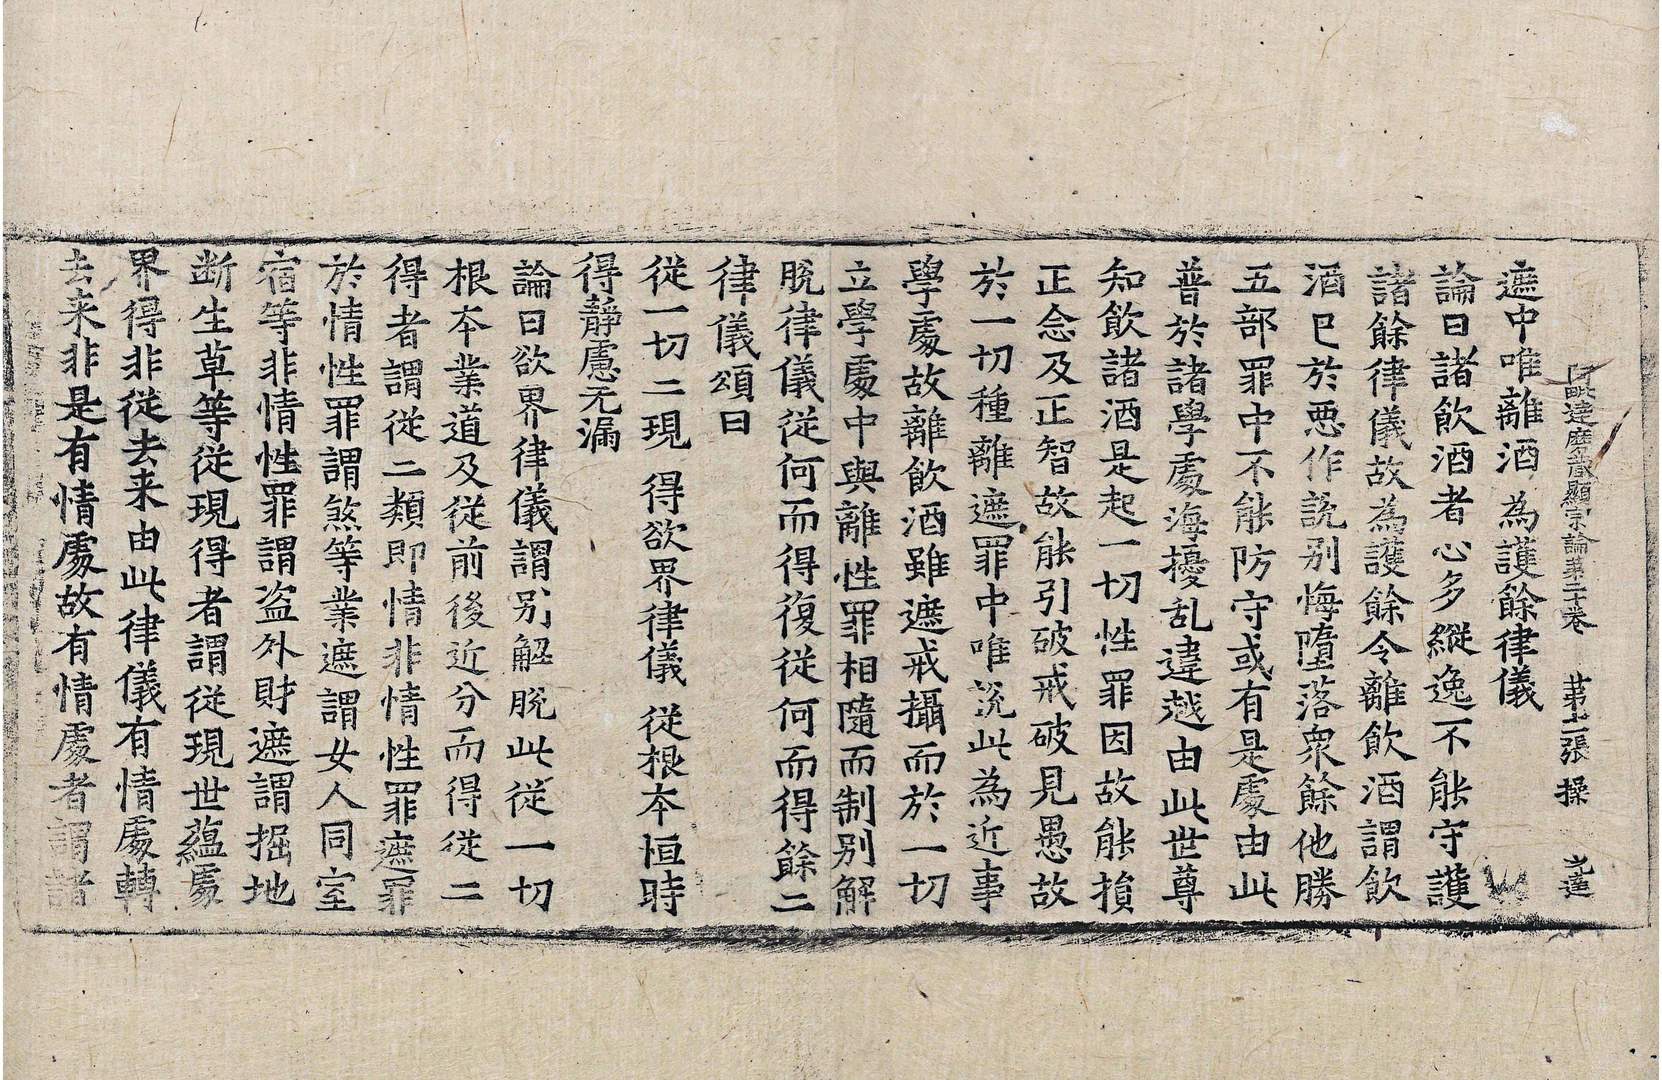 阿毗達磨藏顯宗論第二十卷 第十二張 操
遮中唯離酒 為護餘律儀
論曰諸飲酒者心多縱逸不能守護
諸餘律儀故為護餘令離飲酒謂飲
酒已於惡作說別悔墮落眾餘他勝
五部罪中不能防守或有是處由此
普於諸學處海擾乱違越由此世尊
知飲諸酒是起一切性罪因故能損
正念及正智故能引破戒破見愚故
於一切種離遮罪中唯說此為近事
學處故離飲酒雖遮戒攝而於一切
立學處中與離性罪相隨而制別解
脫律儀從何而得復從何而得餘二
律儀頌曰
從一切二現 得欲界律儀 從根夲恒時
得靜慮无漏
論曰欲界律儀謂別解脫此從一切
根夲業道及從前後近分而得從二
得者謂從二類即情非情性罪遮罪
於情性罪謂煞等業遮謂女人同室
宿等非情性罪謂盗外財遮謂掘地
断生草等從現得者謂從現世蘊處
界得非從去来由此律儀有情處轉
去来非是有情處故有情處者謂諸